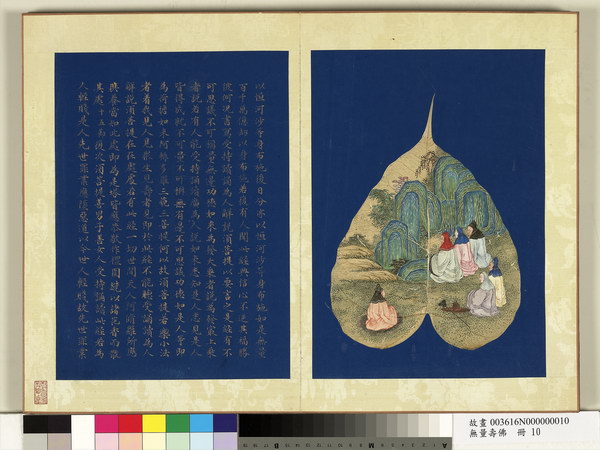 以恒河沙等身布施後日分亦以恒河沙等身布施如是無量
百千萬億劫以身布施若復有人聞此經典信心不逆其福勝
彼何況書寫受持讀誦為人解說須菩提以要言之是經有不
可思議不可稱量無邊功德如來為發大乘者說為發最上乘
者說若有人能受持讀誦廣為人說如來悉知是人悉見是人
皆得成就不可量不可稱無有邊不可思議功德如是人等即
為荷擔如來阿耨多羅三藐三菩提何以故須菩提若樂小法
者著我見人見眾生見壽者見即於此經不能聽受讀誦為人
解說須菩提在在處處若有此經一切世間天人阿修羅所應
供養當知此處即為是塔皆應恭敬作禮圍繞以諸華香而散
其處 復次須菩提善男子善女人受持讀誦此經若為
人輕賤是人先世罪業應墮惡道以今世人輕賤故先世罪業
故畫 003616N000000010
無量壽佛 冊 10